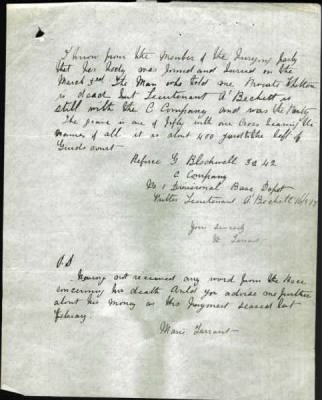 I know from the Member of the Burying Party
that his body was found and buried on the
March 3rd The Man who told me Private
is dead but Lieutenant A'Beckett is
still with the C Company and was the Party
The grave is one of fifty with one Cross bearing the
names of all it is about 400 yards to the left of
court
Referee G Blackwell 3242
C Company
No 1 Divisional Base Depot
Lieutenant A'Beckett
Your sincerely
Tarrant
P.S
Having not received any word from the Base
concerning his death could you advise me further
about his money as the Payment ceased last
February.
Marie Tarrant